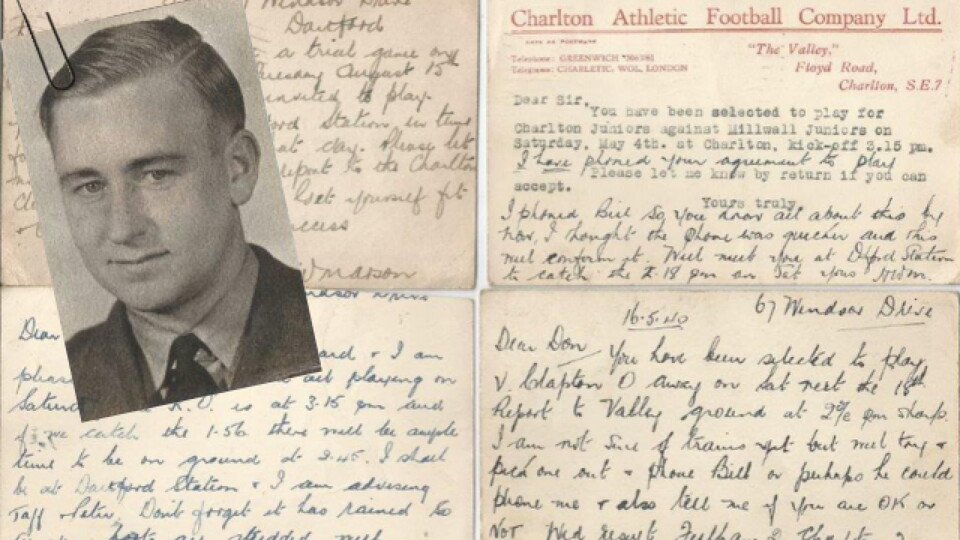 Windsor Drive
Dartford
a trial game on
Tuesday August 15th
invited to play.
Station in time
at day. Please let
report to the Charlton
get yourself fit
success
Charlton Athletic Football Company Ltd.
Telephone: GREENWICH
Telegrams: CHARLETIC, WOL, LONDON
"The Valley,"
Floyd Road,
Charlton, S.E.7
Dear Sir,
You have been selected to play for
Charlton Juniors against Millwall Juniors on
Saturday, May 4th. at Charlton, kick-off 3.15 pm.
I have phoned your agreement to play
Please let me know by return if you can
accept.
Yours truly,
I phoned Bill so you know all about this by
now, I thought the phone was quicker and this
will confirm it. Will meet you at Dford Station
to catch the 1.18 pm on Sat yours
Windsor Drive
Dear
& I am
playing on
K.O. is at 3.15 pm and
if we catch the 1.56 there will be ample
time to be on ground at 2.45. I shall
be at Dartford Station & I am advising
Taff & Peter. Don't forget it has rained so
boots are studded well
67 Windsor Drive
16.5.40
Dear Don
You have been selected to play
v. Clapton O away on Sat next the 18th
Report to Valley ground at 2 pm sharp.
I am not sure of trains yet but will try &
pick one out & phone Bill or perhaps he could
phone me & also tell me if you are OK or
not Wed result